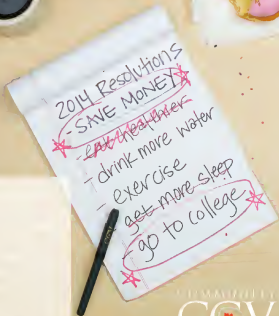 2014 Resolutions
- SAVE MONEY
- eat healthier
- drink more water
- exercise
- get more sleep
- go to college
COMMUNITY
CCV